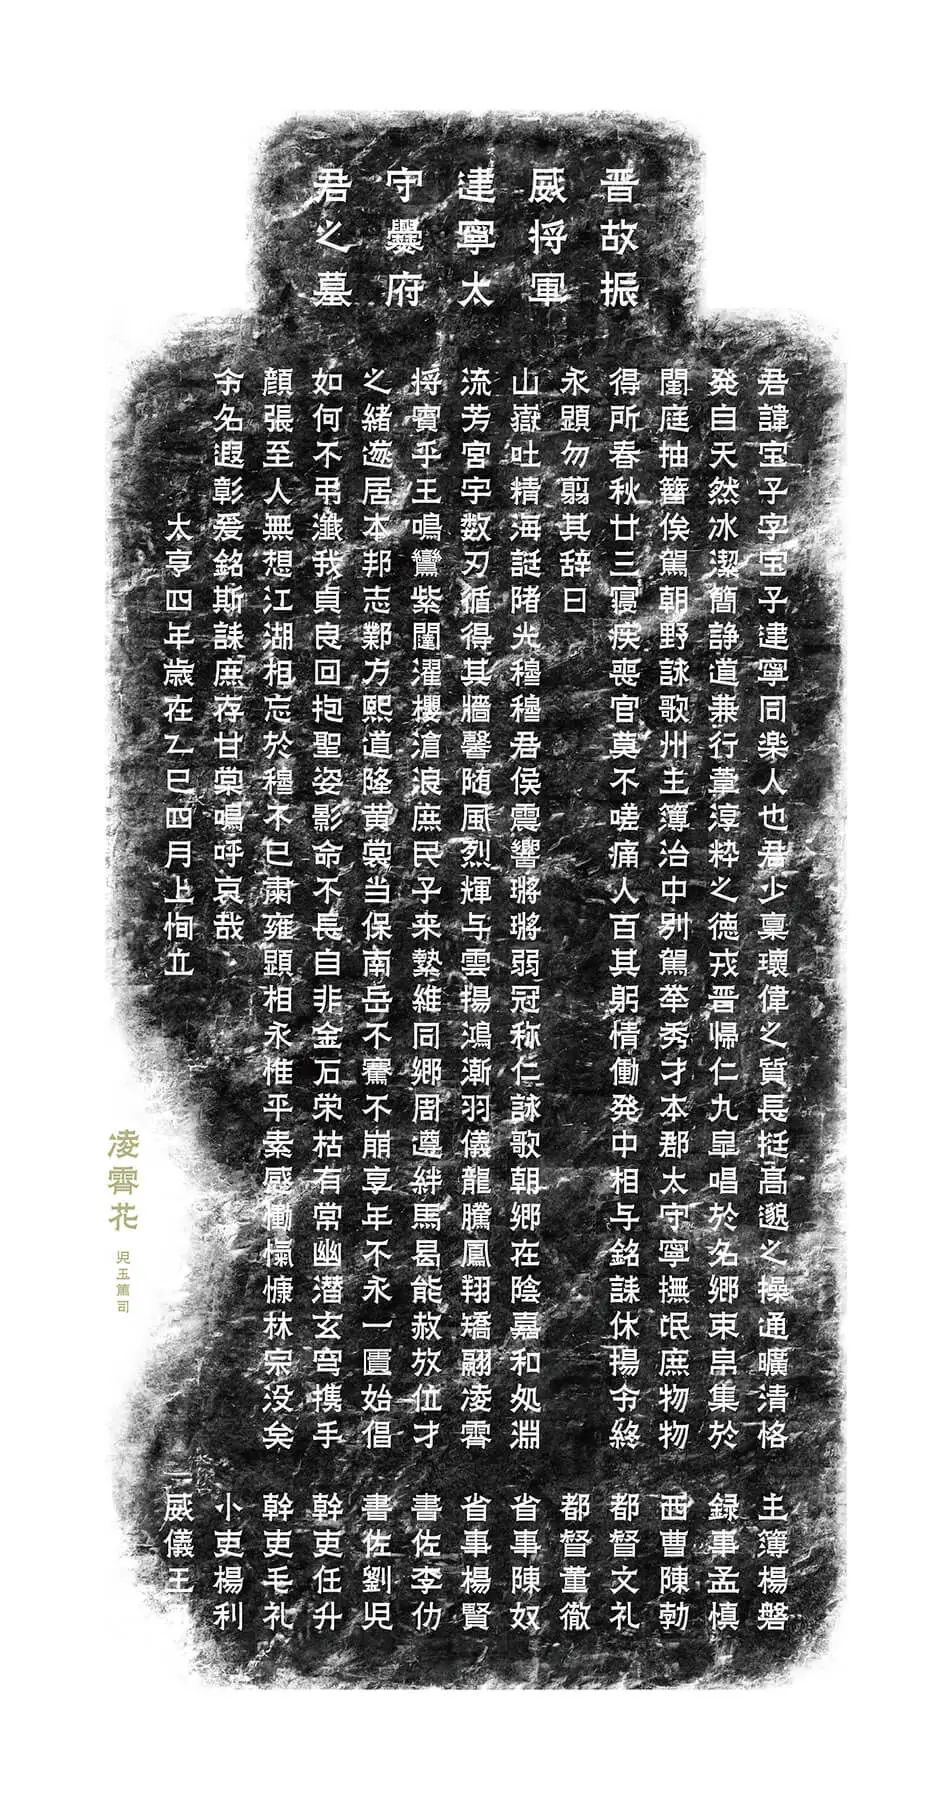 晋故振
威将軍
建寧太
守爨府
君之墓
君諱宝子字宝子建寧同楽人也君少稟瓌偉之質長挺高邈之操通曠清恪
発自天然冰潔簡諍道兼行葦淳粋之徳戎晋帰仁九皐唱於名郷束帛集於
閨庭抽簪俟駕朝野詠歌州主簿治中別駕挙秀才本郡太守寧撫氓庶物物
得所春秋廿三寝疾喪官莫不嗟痛人百其躬情慟発中相与銘誄休揚令終
永顕勿翦其辞曰
山嶽吐精海誕陼光穆穆君侯震響鏘鏘弱冠称仁詠歌朝郷在陰嘉和処淵
流芳宮宇数刃循得其牆馨随風烈輝与雲揚鴻漸羽儀龍騰鳳翔矯翮凌霄
将賓乎王鳴鸞紫闥濯櫻滄浪庶民子来縶維同郷周遵絆馬曷能赦放位才
之緒遂居本邦志鄴方熙道隆黄裳当保南岳不騫不崩享年不永一匱始倡
如何不弔瀸我貞良回抱聖姿影命不長自非金石栄枯有常幽潜玄穹携手
顔張至人無想江湖相忘於穆不已粛雍顕相永惟平素感慟愾慷林宗没矣
令名遐彰爰銘斯誄庶存甘棠鳴呼哀哉
太亨四年歳在乙巳四月上恂立
主簿楊磐
録事孟慎
西曹陳勃
都督文礼
都督董徹
省事陳奴
省事楊賢
書佐李仂
書佐劉児
幹吏任升
幹吏毛礼
小吏楊利
威儀王
凌霄花
児玉篤司